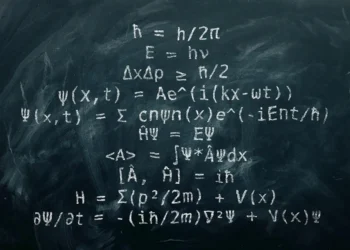 ħ = h/2π
E = hν
ΔxΔp ≥ ħ/2
ψ(x,t) = Ae^(i(kx-wt))
Ψ(x,t) = Σ cnψn(x)e^(-iEnt/ħ)
ĤΨ = EΨ
<A> = ∫Ψ*ÂΨdx
[Â, Ĥ] = iħ
H = Σ(p²/2m) + V(x)
∂Ψ/∂t = -(iħ/2m)∇²Ψ + V(x)Ψ